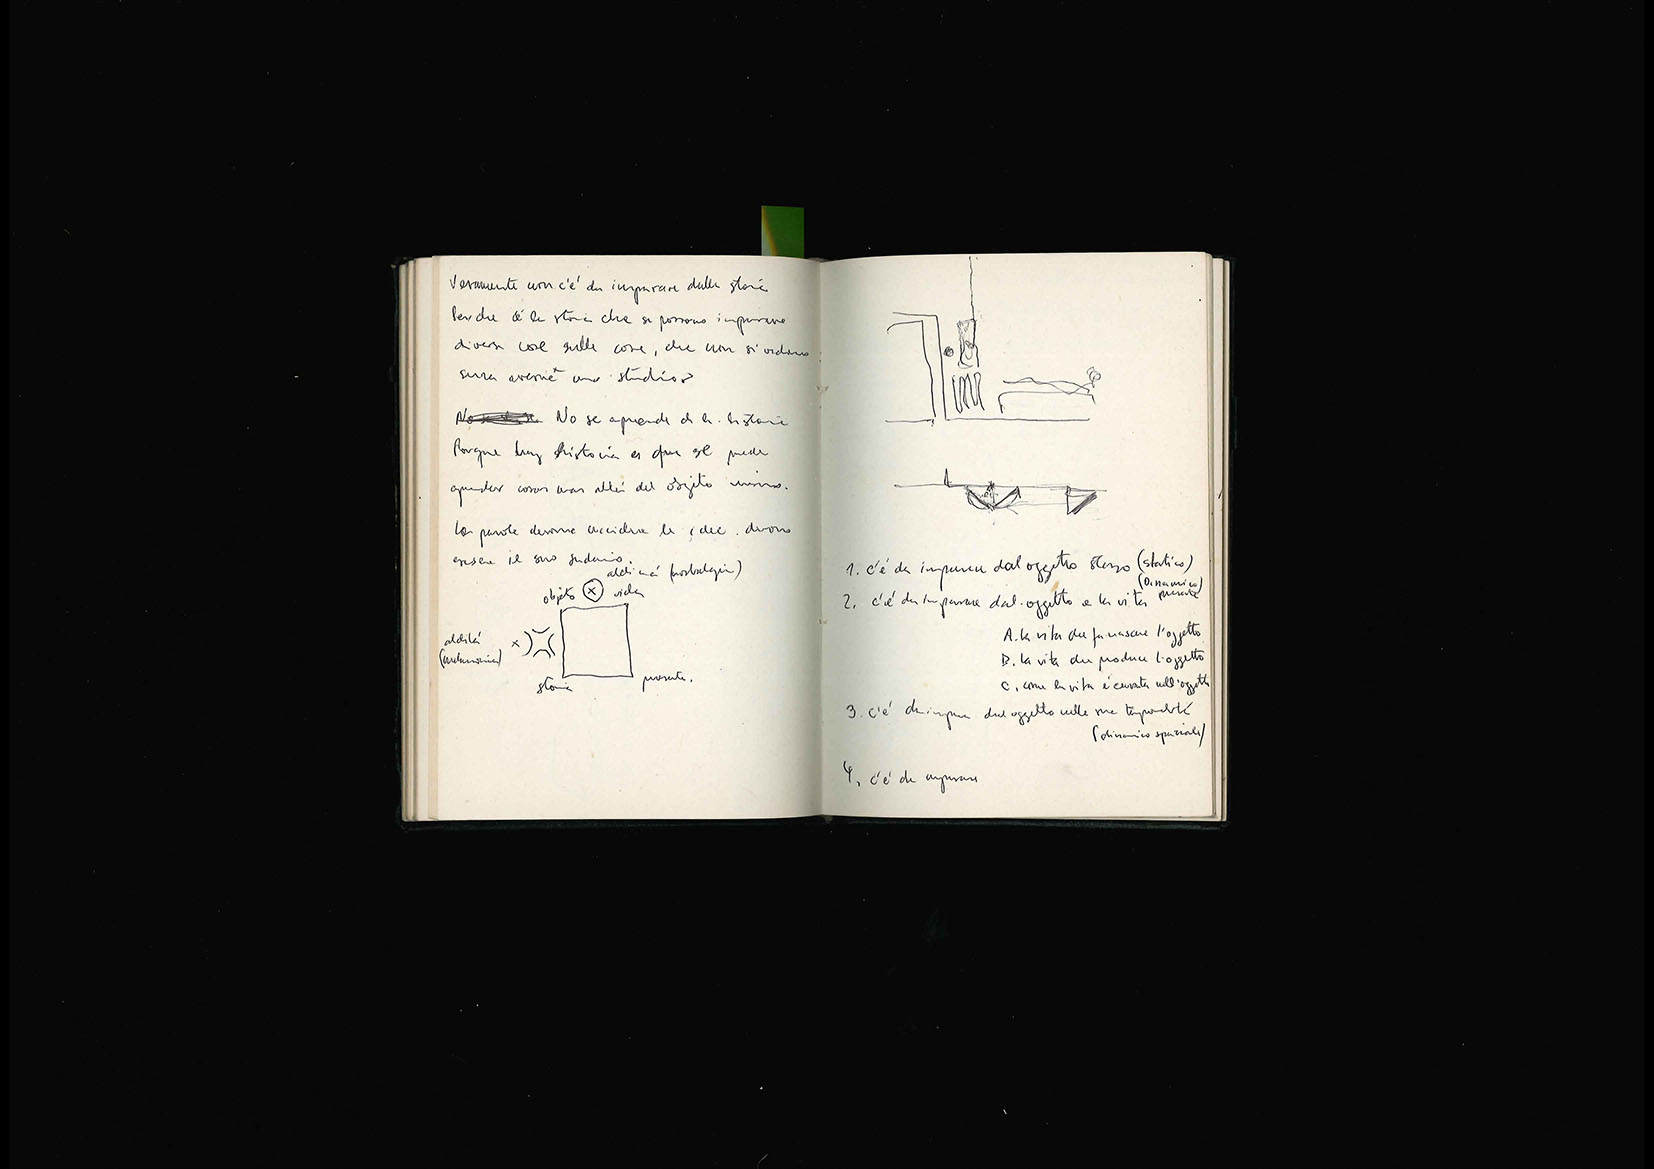 Veramente non c'é da imparare dalla storia
Perche é la storia che si possono imparare
diverse cose sulle cose, che non si vedono
senza averne uno studio?
No se aprende de la historia
Porque hay historia es que se puede
aprender cosas mas allá del objeto mismo.
Las parole devono uccidere le idee. devono
essere il suo sudario.
aldi
objeto x vida
x
storia
presente.
1. c'é da imparare dal oggetto stesso (statico)
(Dinamico)
2. c'é da imparare dal oggetto e la vita presente
A. la vita che fa nascere l'oggetto
B. la vita che produce l'oggetto
C. come la vita é nell'oggetto
3. c'é da imparare dal oggetto nella sua temporalità
(dinamico spaziale)
4. c'é da imparare